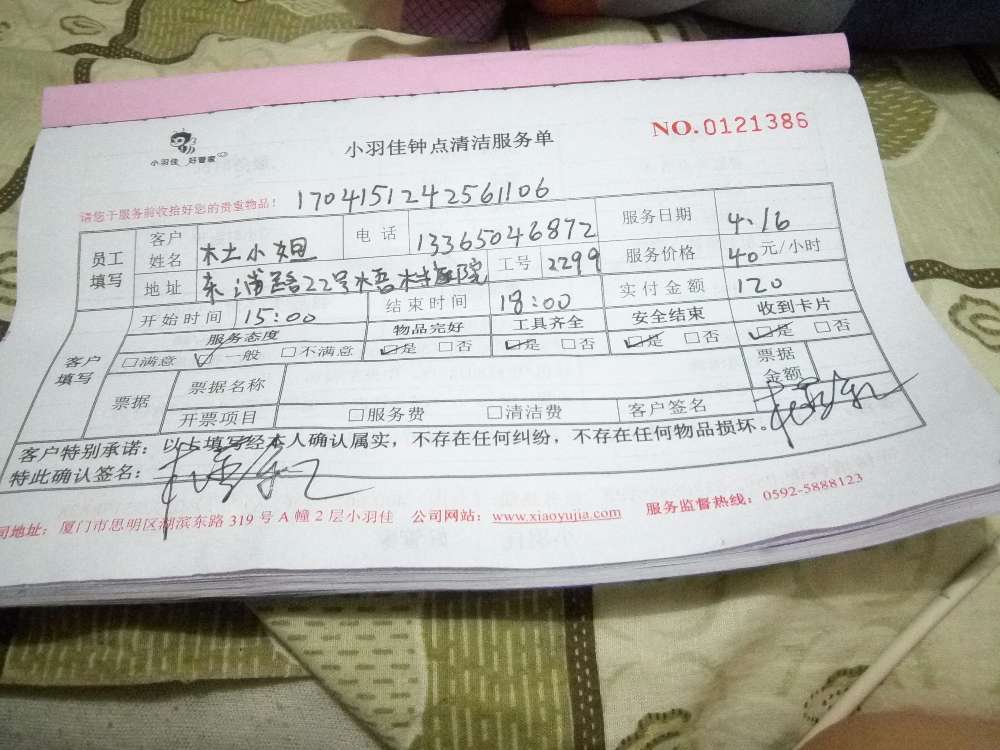 小羽佳 好管家
小羽佳钟点清洁服务单
NO.0121386
请您于服务前收拾好您的贵重物品！
1704151242561106
员工填写 客户姓名 杜小姐 电话 13365046872 服务日期 4.16
地址 东浦路22号 工号 2299 服务价格 40元/小时
开始时间 15:00 结束时间 18:00 实付金额 120
客户填写 服务态度 物品完好 工具齐全 安全结束 收到卡片
□满意 ☑一般 □不满意 ☑是 □否 ☑是 □否 ☑是 □否 ☑是 □否
票据 票据名称 票据金额
开票项目 □服务费 □清洁费 客户签名
客户特别承诺：以上填写经本人确认属实，不存在任何纠纷，不存在任何物品损坏。
特此确认签名：
司地址：厦门市思明区湖滨东路319号A幢2层小羽佳 公司网站：www.xiaoyujia.com 服务监督热线：0592-5888123